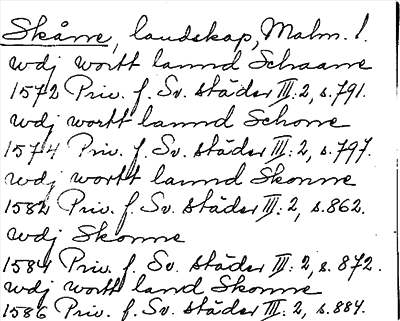 Skåne, landskap, Malm. l.
wdj wortt lannd Schaane
1572 Priv. f. Sv. städer III: 2, s. 791.
wdj wortt lannd Schone
1574 Priv. f. Sv. städer III: 2, s. 797.
wdj wortt lannd Skonne
1582 Priv. f. Sv. städer III: 2, s. 862.
wdj Skonne
1584 Priv. f. Sv. städer III: 2, s. 872.
wdj wortt land Skonne
1586 Priv. f. Sv. städer III: 2, s. 884.